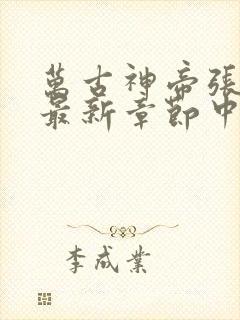 萬古神帝張
最新章節中
李成業